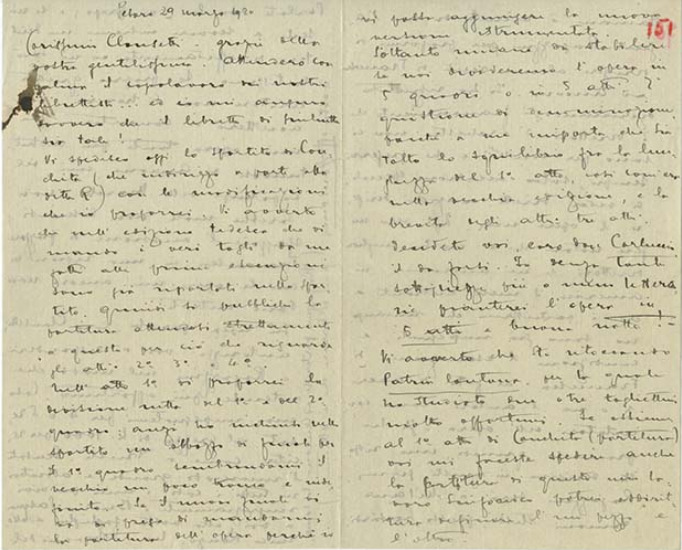 Pesaro 29 marzo 1920
Carissimo Clausetti. grazie della
vostra gentilissima. Attenderò con
il capolavoro dei nostri
librettisti... ed io mi auguro
davvero che il libretto di Giulietta
sia tale!
Vi spedisco oggi lo spartito di Con-
chita (che indirizzo a parte alla
ditta R) con le modificazioni
che io proporrei. Vi avverto
che nell'edizione tedesca che vi
mando i veri tagli da me
fatti alle prime esecuzioni
sono già riportati nello spar-
tito. Quindi si pubblichi la
partitura attenendosi strettamente
a questo per ciò che riguarda
gli atti 2º 3º e 4º.
Nell'atto 1º vi proporrei la
divisione netta del 1º e del 2º
quadro, anzi ho messo nello
spartito un abbozzo di finale per
il 1º quadro sembrandomi il
vecchio un poco tronco e inde-
finito. Se
la partitura dell'opera perchè io
151
vi possa aggiungere la nuova
versione istrumentata.
Soltanto rimane da stabilire
se noi divideremo l'opera in
5 quadri o in 5 atti?
quistione di denominazione,
poichè a me importa che sia
tolto lo squilibrio fra la lun-
ghezza del 1º atto, così com'era
nella vecchia edizione, e la
brevità degli altri tre atti.
Decidete voi, caro don Carluccio
il da farsi. Io senza tanti
più o meno lettera-
ri proporrei l'opera in
5 atti e buona notte! -
Vi avverto che sto ritoccando
Patria lontana per la quale
ho studiato due o tre taglietti
molto opportuni. Se assieme
al 1º atto di Conchita (partitura)
voi mi faceste spedire anche
la partitura di questo mio la-
voro potrei addirit-
tura definire l'un pezzo e
l'altro.